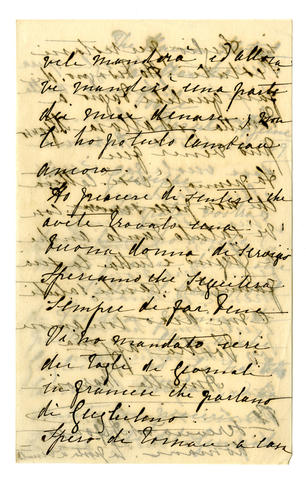 ve le manderà, ed allora
ve manderò una parte
dei miei denari, non
li ho potuto cambiar
ancora.
Ho piacere di sentire che
avete trovato una
buona donna di servizio
speriamo che seguiterà
sempre di far bene
Vi ho mandato ieri
dei tagli di giornali
in francese che parlano
di Guglielmo.
Spero di tornare a casa